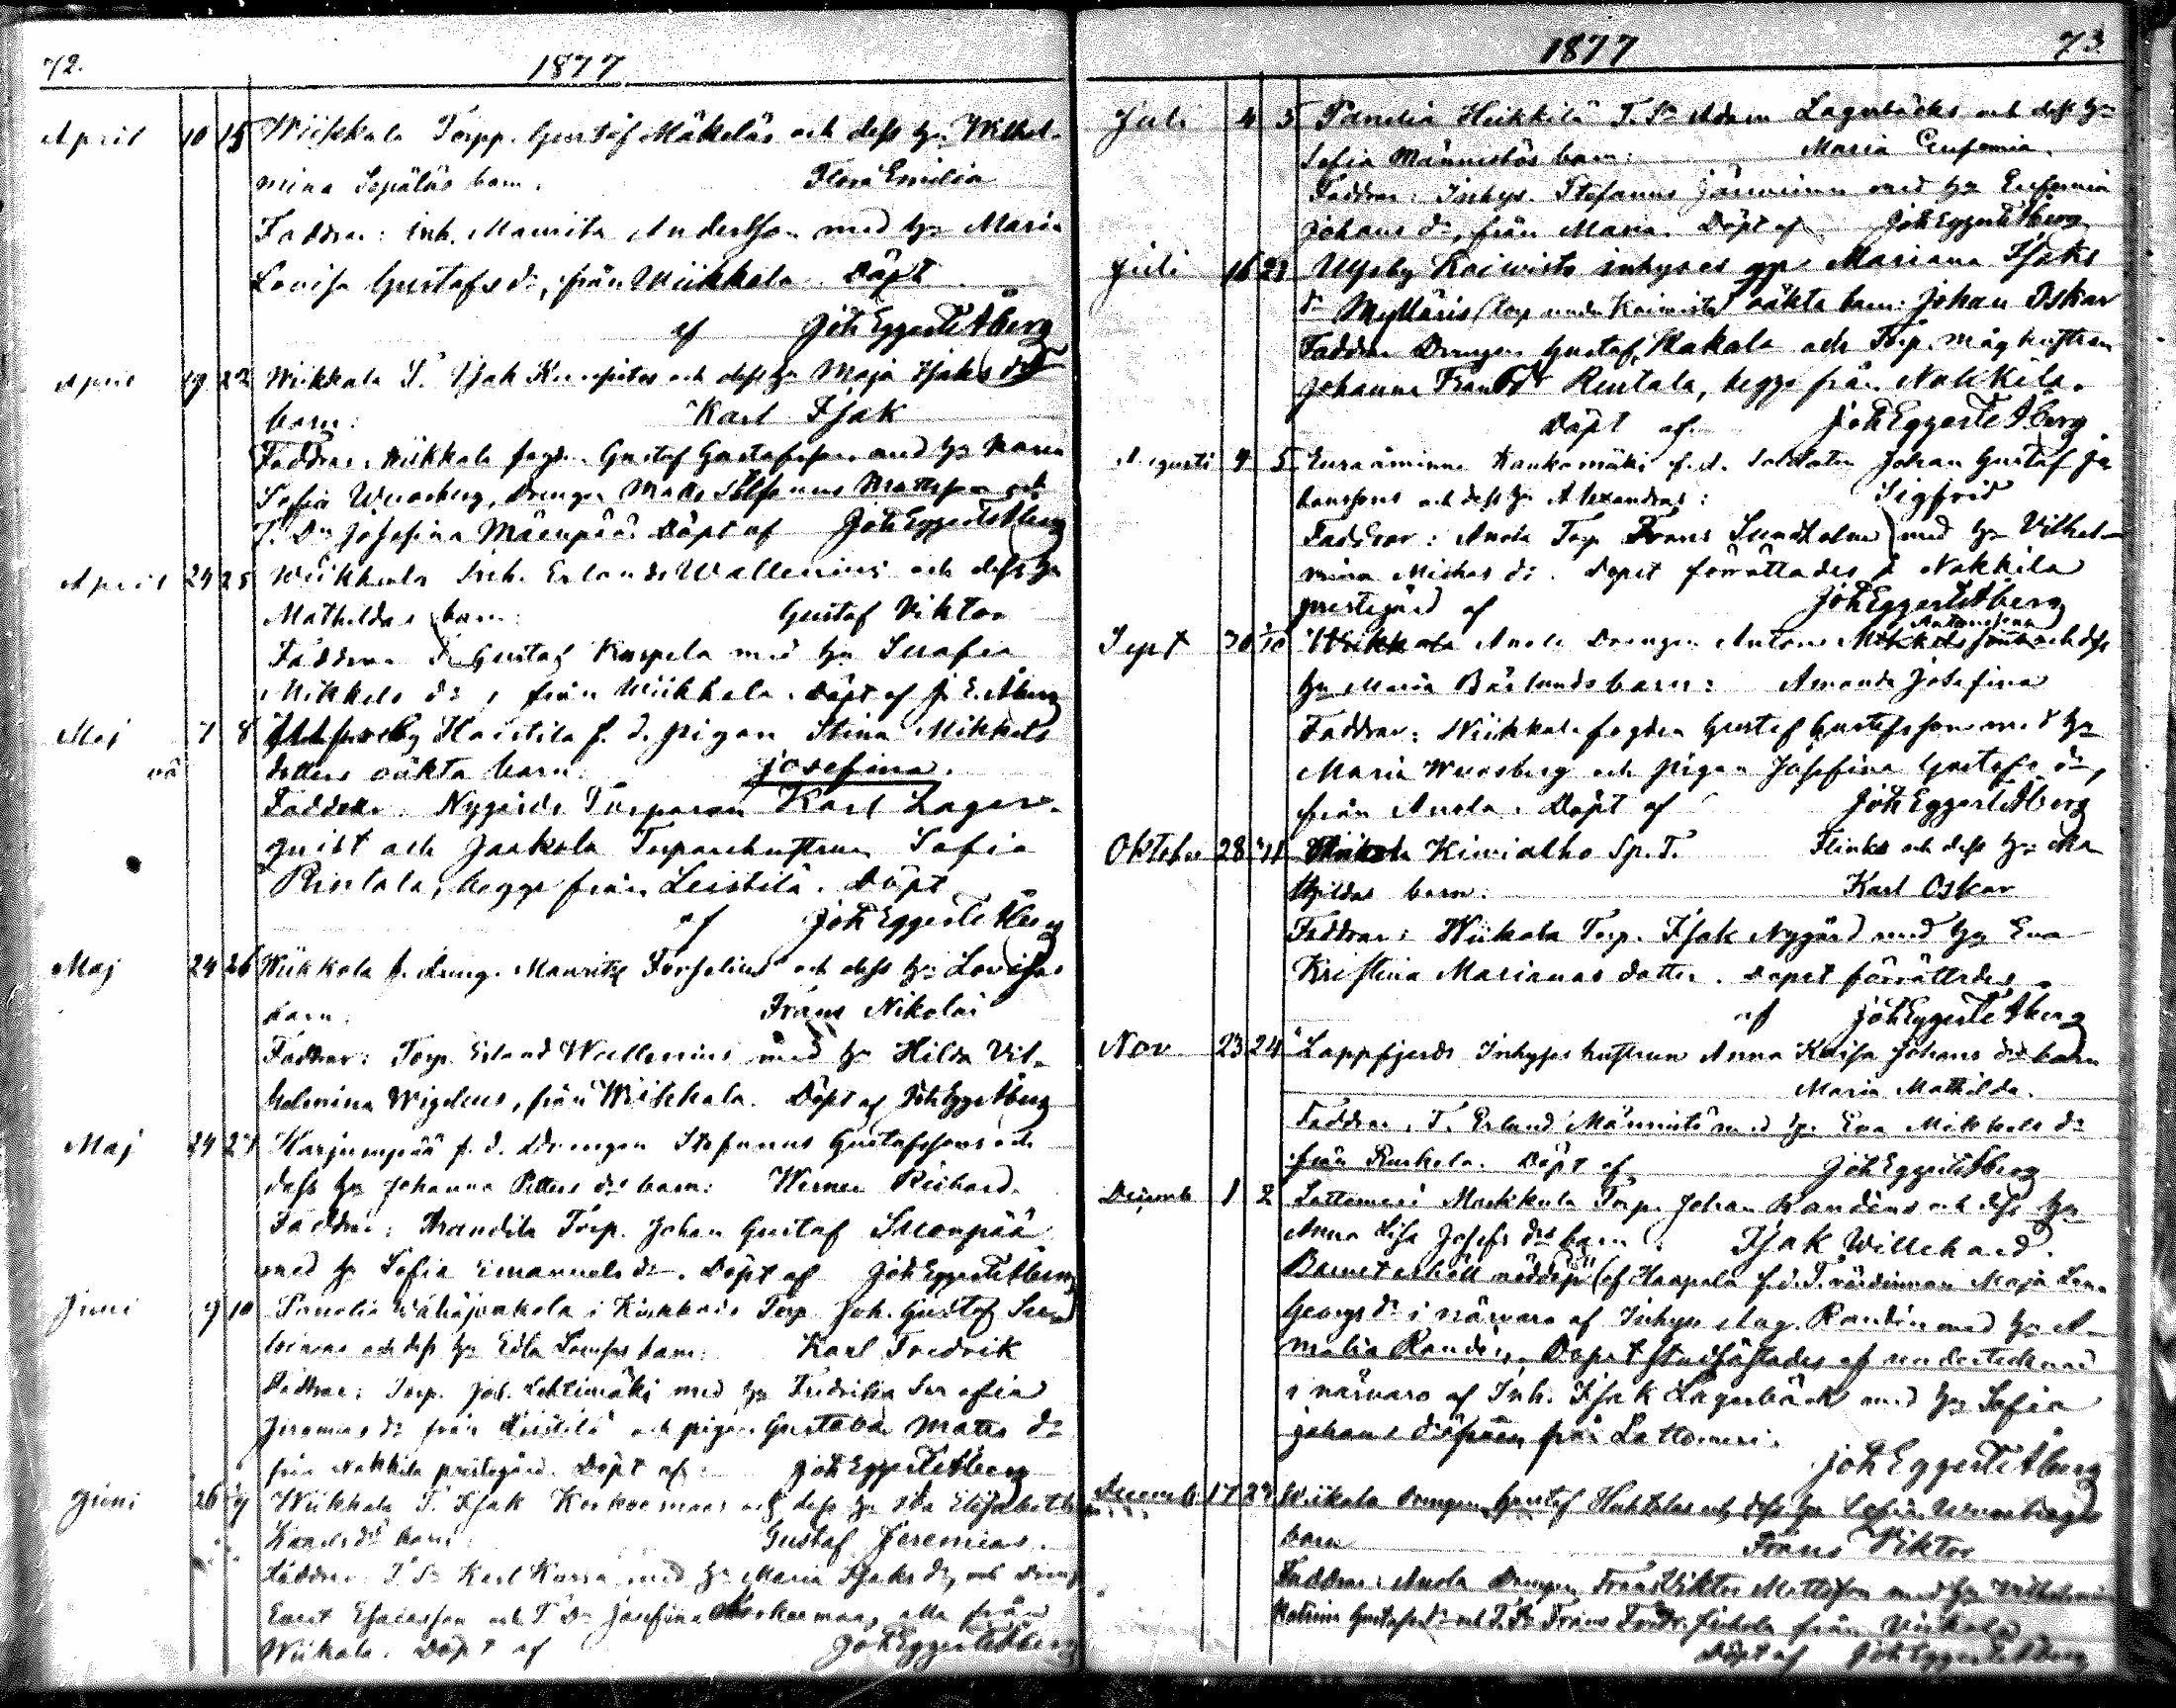 72.
1877
April 10 15 Wiikkala Torpp. Gustaf Mäkeläs och dess h. Wilhel-
mina Sepäläs barn. Flora Emilia
Faddrar: inh. Maurits Andersson med h. Maria
Lovisa Gustafs dr, från Wiikkala. Döpt
af Joh Eggert Åberg
April 19 22 Wiikkala T. Isak och dess h. Maja Isaks dr
barn: Karl Isak
Faddrar: Wiikkala fogden Gustaf Gustafsson med h. Maria
Sofia Wennberg, Drengen Stefanus Mattsson och
T. Dr Josefina Mäenpää. Döpt af Joh Eggert Åberg
April 24 25 Wiikkala Inh. Erland Wallenius och dess h.
Mathildas barn: Gustaf Viktor
Faddrar Gustaf Karpela med h. Serafia
Mikkels dr, från Wiikkala. Döpt af J. E. Åberg
Maj 7 8 Haistila f. d. pigan Stina Mikkels
oä dotters oäkta barn: Josefina.
Faddrar. Nygårds Torparen Karl Lager-
quist och Jaakola Torparehustrun Sofia
Rintala, begge från Leistilä. Döpt
af Joh Eggert Åberg
Maj 24 26 Wiikkala f. dreng. Mauritz Forselius och dess h. Lovisas
barn: Frans Nikolai
Faddrar: Torp. Erland Wallenius med h. Hilda Vil-
helmina Wigelius, från Wiikkala. Döpt af Joh Egg Åberg
Maj 24 27 Harjunpää f. d. drengen Stefanus Gustafssons och
dess h. Johanna Petters drs barn: Werner Richard.
Faddrar: Torp. Johan Gustaf
med h. Sofia Emanuels dr. Döpt af Joh Eggert Åberg
Juni 9 10 Panelia i Torp. Joh. Gustaf
och dess h. Edla barn: Karl Fredrik
Faddrar: Torp. Joh. Lehtimäki med h. Fredrika Serafia
Jeremias dr från Leistilä och pigan Gustava Matts dr
från Nakkila prestegård. Döpt af Joh Eggert Åberg
Juni 26 Wiikkala T. Isak Korkeemaas och dess h. Ida Elisabeth
barn: Gustaf Jeremias.
Faddrar: T. Sn Karl med h. Maria Isaks dr, och Dreng
Esaiasson och T. Dr Josefina Korkeemaa, alla från
Wiikala. Döpt af Joh Eggert Åberg
1877
73.
Juli 4 5 Panelia Heikkilä T. Sn Adam Lagerbäcks och dess h.
Sofia Männistös barn: Maria Eufemia.
Faddrar: Inhys. Stefanus Järvinen med h. Eufemia
Johans dr, från Masia. Döpt af Joh Eggert Åberg
Juli 16 21 Ulfsby Koivisto inhyses Mariana Isaks
dr Mylläris (torp under Koivisto) oäkta barn: Johan Oskar
Faddrar Drengen Gustaf Kakala och Torp. måghustrun
Johanna Rintala, begge från Nakkila.
Döpt af Joh Eggert Åberg
Augusti 4 5 Euraåminne Kaukomäki f. d. soldaten Johan Gustaf Jo-
hanssons och dess h. Alexandras: Sigfrid
Faddrar: Anola Torp Frans Lundholm med h. Vilhel-
mina Mickels dr. Dopet förrättades i Nakkila
prestegård af Joh Eggert Åberg
Sept 30 Anola Drengen Antons Antonssons och dess
h. Maria Bärlunds barn: Amanda Josefina
Faddrar: Wiikkala fogden Gustaf Gustafsson med h.
Maria Wennberg och pigan Josefina Gustafs dr,
från Anola. Döpt af Joh Eggert Åberg
Oktober 28 Kivialho Sp. T. Flinks och dess h. Ma-
thildas barn: Karl Oskar
Faddrar: Wiikala Torp. Isak Nygård med h. Eva
Kristina Marianas dotter. Dopet förrättades
af Joh Eggert Åberg
Nov 23 24 Lappfjerds Inhyses hustrun Anna Kaisa Johans drs barn
Maria Mathilda.
Faddrar. T. Erland Männistö med h. Eva Mikkels dr
från Ruskela. Döpt af Joh Eggert Åberg
Decemb 1 2 Lattomeri Markkula Torp. Johan Randéns och dess h.
Anna Lisa Josefs drs barn: Isak Willehard.
Barnet erhöll nöddop af Haapala f. d. T. värdinnan Maja Lena
Georgs dr i närvaro af Inhys Aug. Randén med h. A-
malia Randén. Dopet stadfästades af undertecknad
i närvaro af Inh. Isak Lagerbäck med h. Sofia
Johans dr från Lattomeri.
Joh Eggert Åberg
Decemb. 17 23 Wiikala Drengen Gustaf och dess h. Sofia Wennbergs
barn Frans Viktor
Faddrar: Anola Drengen Frans Viktor Mattsson med h. Vilhelmina
Katrina Gustafs dr och T. Sn Frans från Wiikala
Döpt af Joh Eggert Åberg